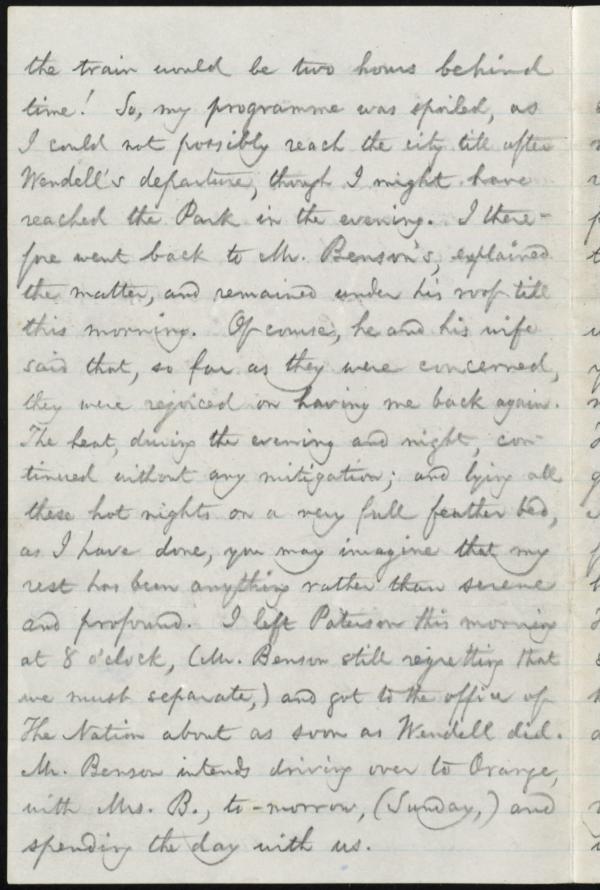 the train would be two hours behind
time! So, my programme was spoiled, as
I could not possibly reach the city till after
Wendell's departure, though I might have
reached the Park in the evening. I there-
fore went back to Mr. Benson's, explained
the matter, and remained under his roof till
this morning. Of course, he and his wife
said that, so far as they were concerned,
they were rejoiced on having me back again.
The heat, during the evening and night, con-
tinued without any mitigation; and lying all
these hot nights on a very full feather bed,
as I have done, you may imagine that my
rest has been anything rather than serene
and profound. I left Paterson this morning
at 8 o'clock, (Mr. Benson still regretting that
we must separate,) and got to the office of
The Nation about as soon as Wendell did.
Mr. Benson intends driving over to Orange,
with Mrs. B., to-morrow, (Sunday,) and
spending the day with us.